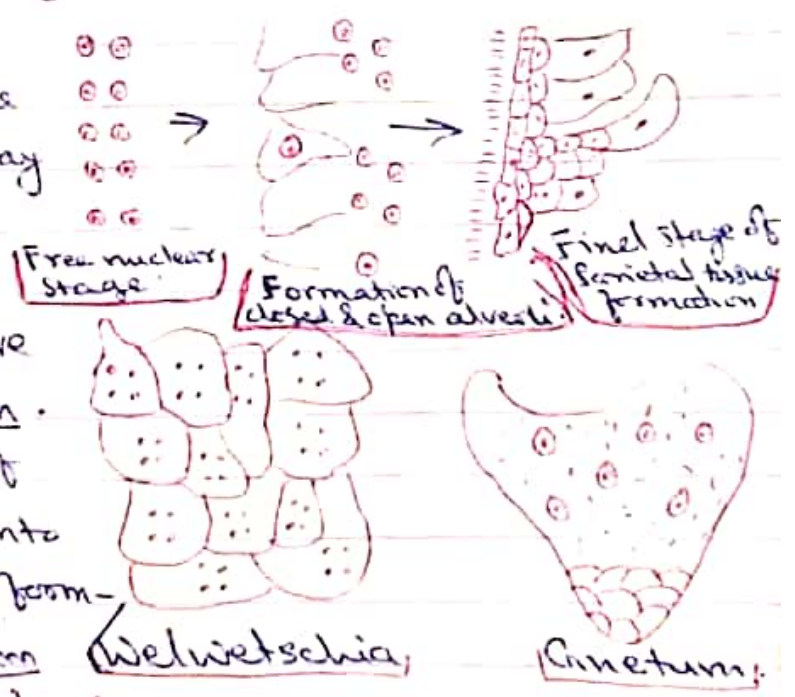 ay
Free nuclear
stage
Formation of
closed & open alveoli.
Final stage of
Parietal tissue
formation
ve
n.
nto
form-
Welwetschia,
Gnetum;